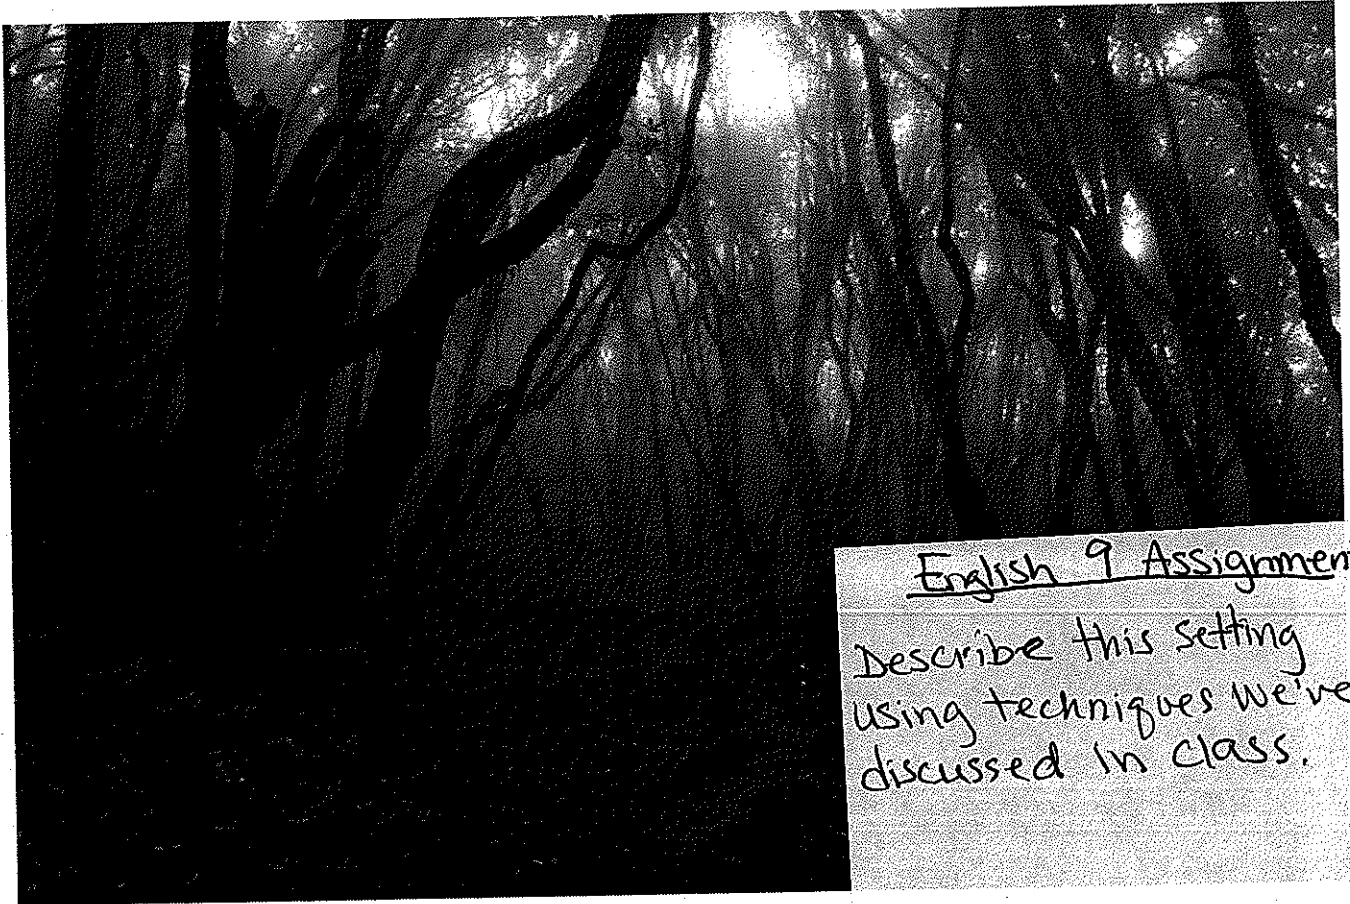 English 9 Assignmen
Describe this setting
using techniques we've
discussed in class.